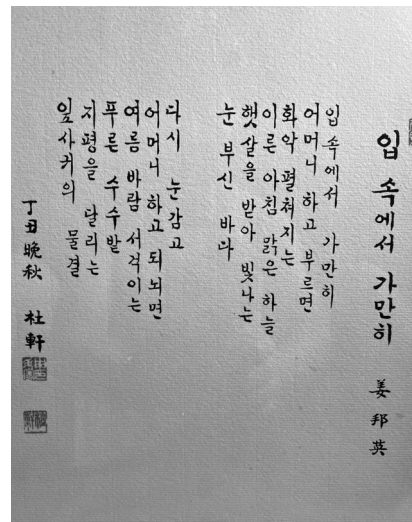 입 속에서 가만히
姜邦英
입 속에서 가만히
어머니 하고 부르면
화악 펼쳐지는
이른 아침 맑은 하늘
햇살을 받아 빛나는
눈 부신 바다
다시 눈 감고
어머니 하고 되뇌면
여름 바람 서걱이는
푸른 수수밭
지평을 달리는
잎사귀의 물결
丁丑晩秋 杜軒